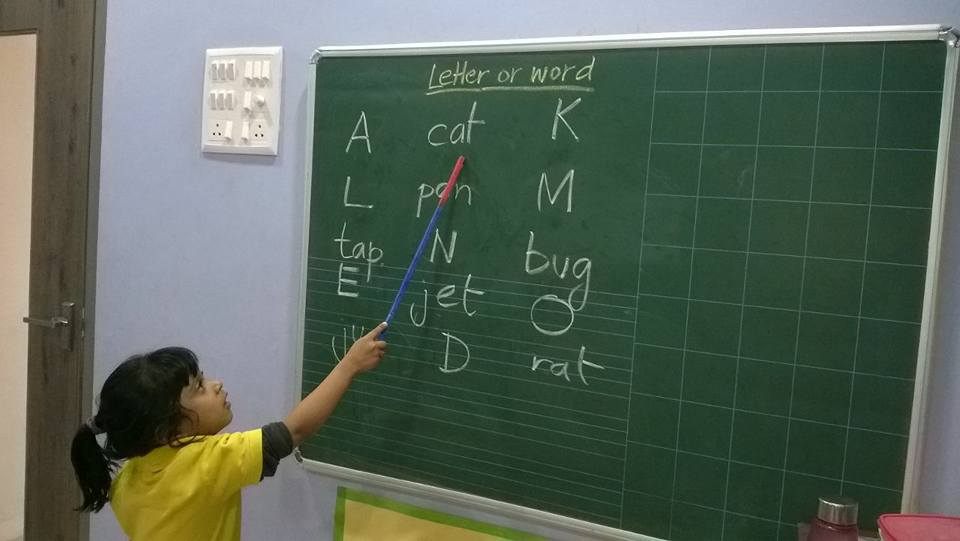 Letter or word
A cat K
L M
tap N bug
E jet O
D rat